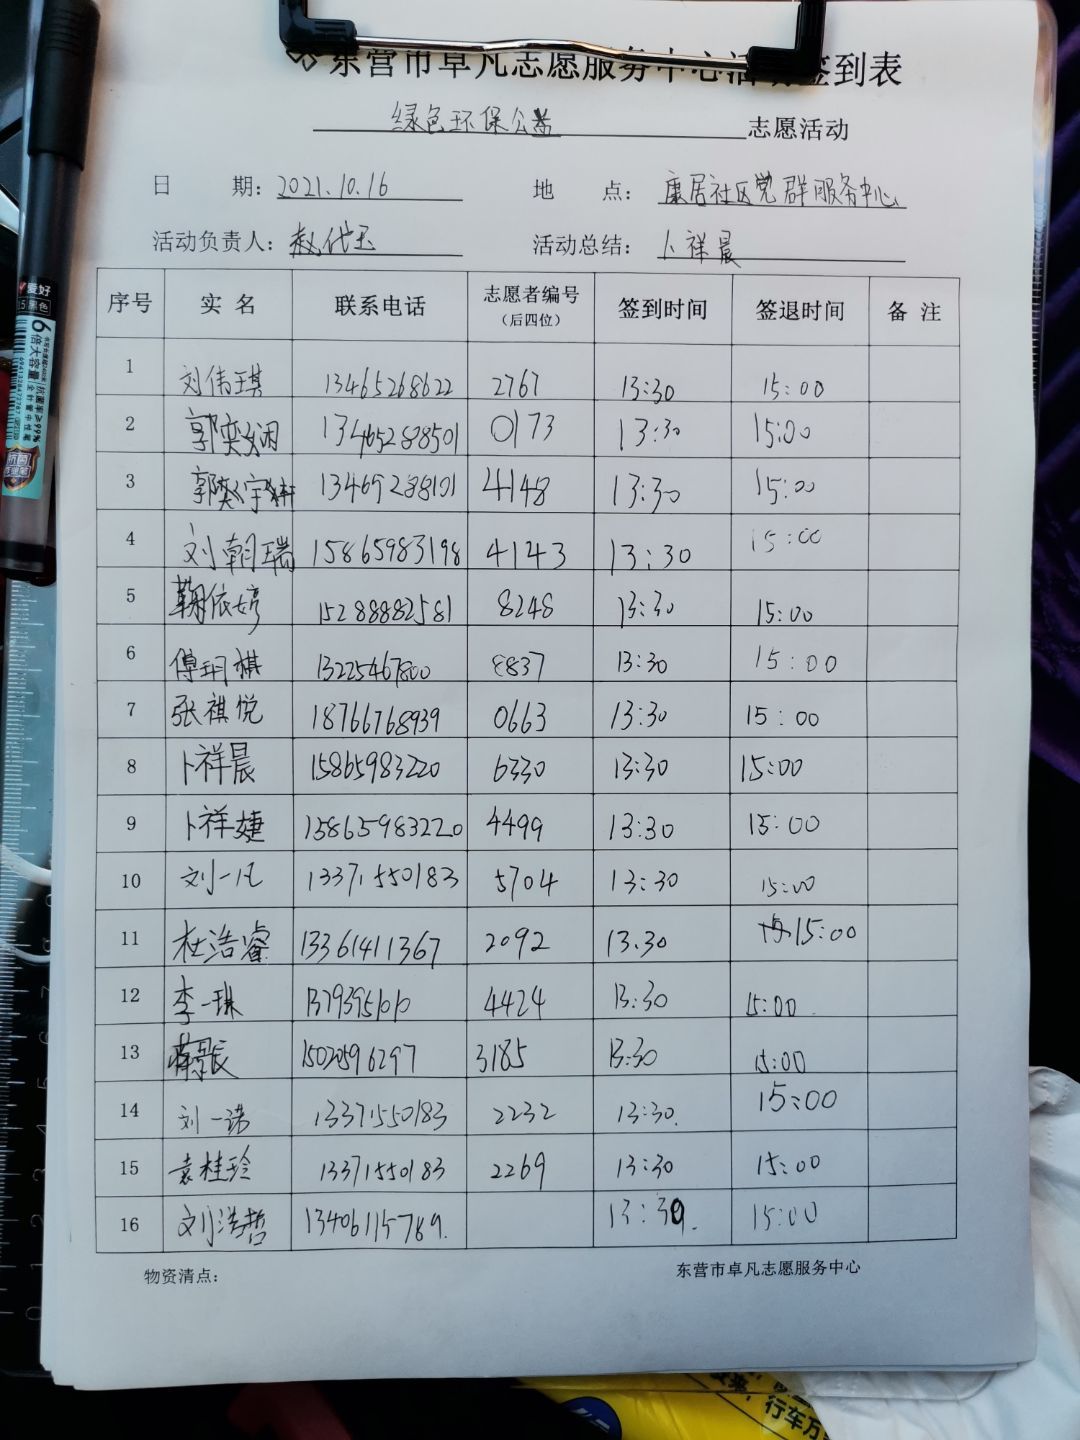 东营市卓凡志愿服务中心活动签到表
绿色环保公益 志愿活动
日 期: 2021.10.16 地 点: 康居社区党群服务中心
活动负责人: 赵代玉 活动总结: 卜祥晨
序号 实 名 联系电话 志愿者编号(后四位) 签到时间 签退时间 备 注
1 刘伟琪 13465268622 2767 13:30 15:00
2 13465288501 0173 13:30 15:00
3 13469288101 4148 13:30 15:00
4 刘朝瑞 15865983198 4143 13:30 15:00
5 鞠依婷 15288882581 8248 13:30 15:00
6 傅玥祺 13225467800 8837 13:30 15:00
7 张祺悦 18766768939 0663 13:30 15:00
8 卜祥晨 15865983220 6330 13:30 15:00
9 卜祥婕 15865983220 4499 13:30 15:00
10 刘一凡 13371550183 5704 13:30 15:00
11 杜浩睿 13361411367 2092 13.30 15:00
12 李一琳 4424 13:30 15:00
13 3185 13:30 15:00
14 刘一诺 13371550183 2232 13:30. 15:00
15 袁桂玲 13371550183 2269 13:30 15:00
16 刘浩哲 13406115789. 13:30. 15:00
物资清点: 东营市卓凡志愿服务中心
爱好
黑色
6倍大容量
抗菌率≥99%
全针管中性笔
行车万